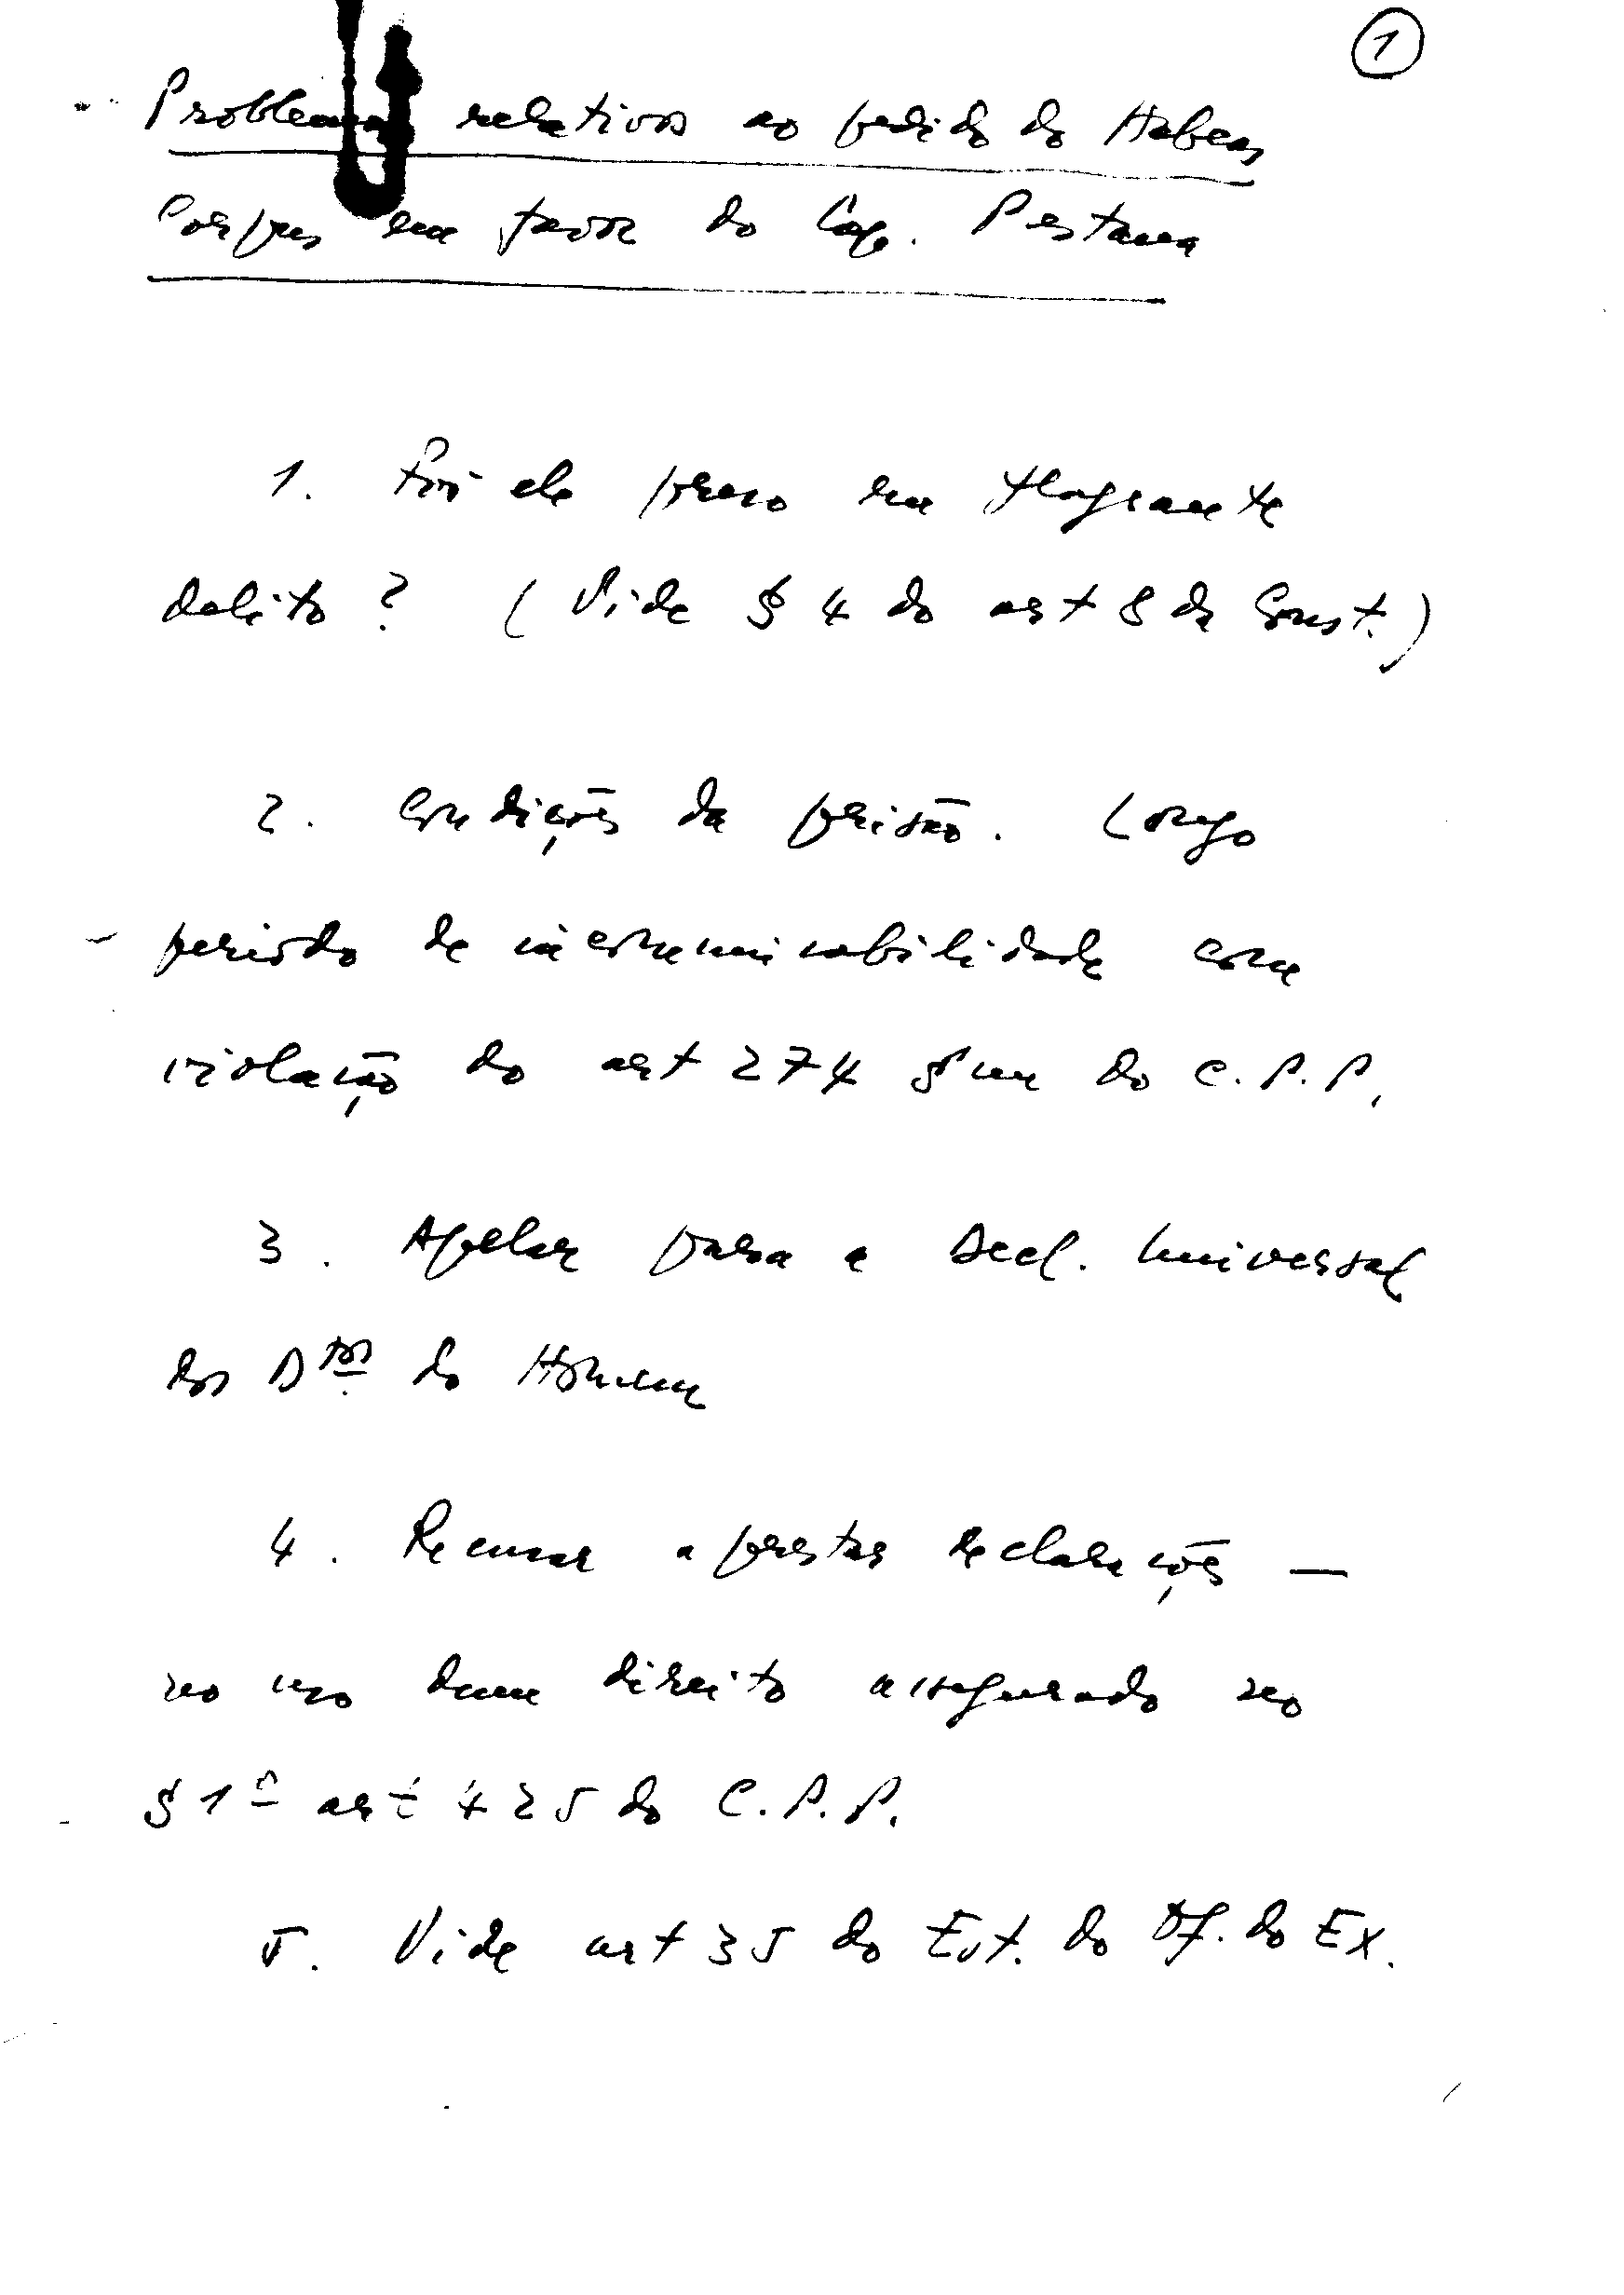 1
Problemas relativos ao pedido do Habeas
Corpus em favor do Cap. Pestana
1. Foi ele preso em flagrante
delito? (Vide § 4 do art 8 da Const.)
2. Condições da prisão. Longo
período de incomunicabilidade com
violação do art 274 § un do C.P.P.
3. Apelar para a Decl. Universal
dos Dtos do Homem
4. Recusar a prestar declarações —
no uso dum direito assegurado no
§ 1º art 425 do C.P.P.
5. Vide art 35 do Est. do Of. do Ex.